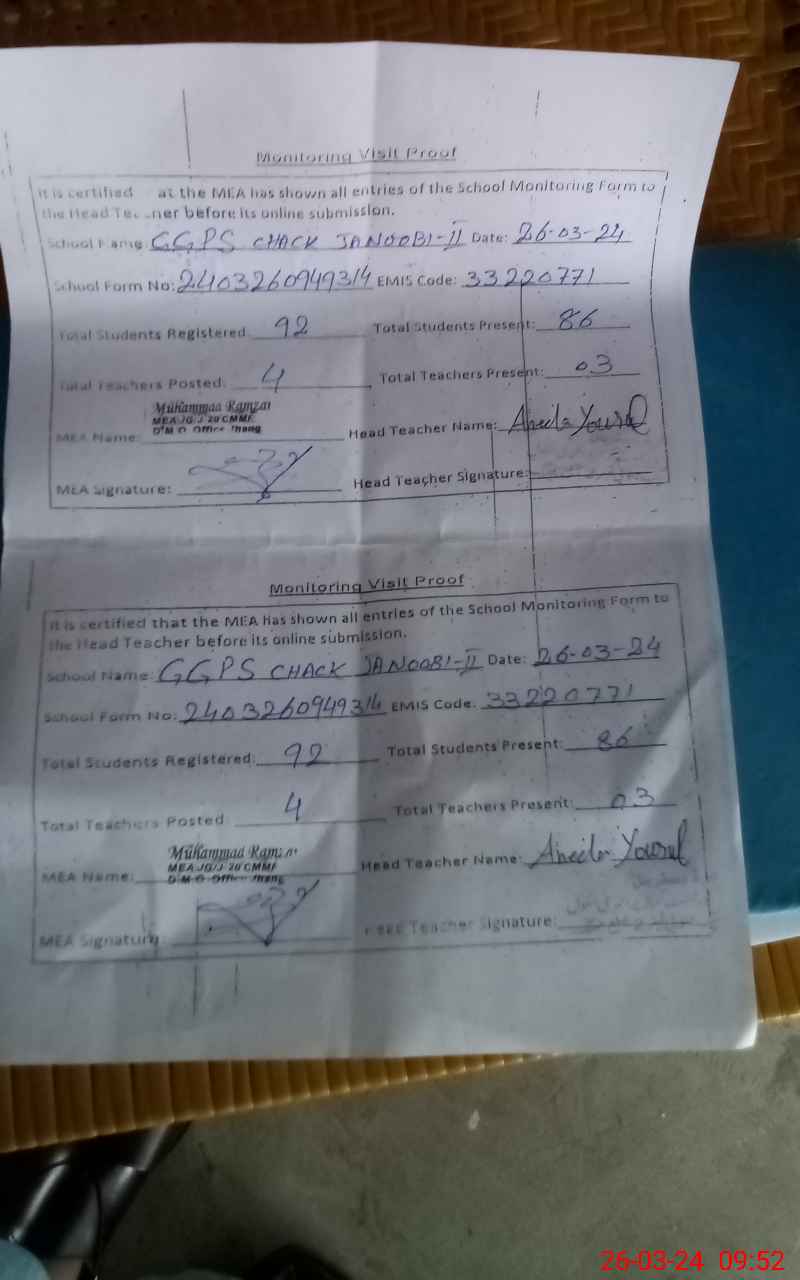 Monitoring Visit Proof
It is certified at the MEA has shown all entries of the School Monitoring Form to
the Head Teacher before its online submission.
School Name GGPS CHACK JANOOBI-II Date: 26-03-24
School Form No: 2403260949314 EMIS Code: 33220771
Total Students Registered 92 Total Students Present: 86
Total Teachers Posted: 4 Total Teachers Present: 03
Muhammad Ramzan
MEA JG/J-20 CMMF
D.M.O. Office Jhang
MEA Name: Head Teacher Name:
MEA Signature: Head Teacher Signature:
Monitoring Visit Proof
It is certified that the MEA has shown all entries of the School Monitoring Form to
the Head Teacher before its online submission.
School Name: GGPS CHACK JANOOBI-II Date: 26-03-24
School Form No: 2403260949314 EMIS Code: 33220771
Total Students Registered: 92 Total Students Present: 86
Total Teachers Posted: 4 Total Teachers Present: 03
Muhammad Ramzan
MEA JG/J-20 CMMF
D.M.O. Office Jhang
MEA Name: Head Teacher Name:
MEA Signature: Head Teacher Signature:
26-03-24 09:52